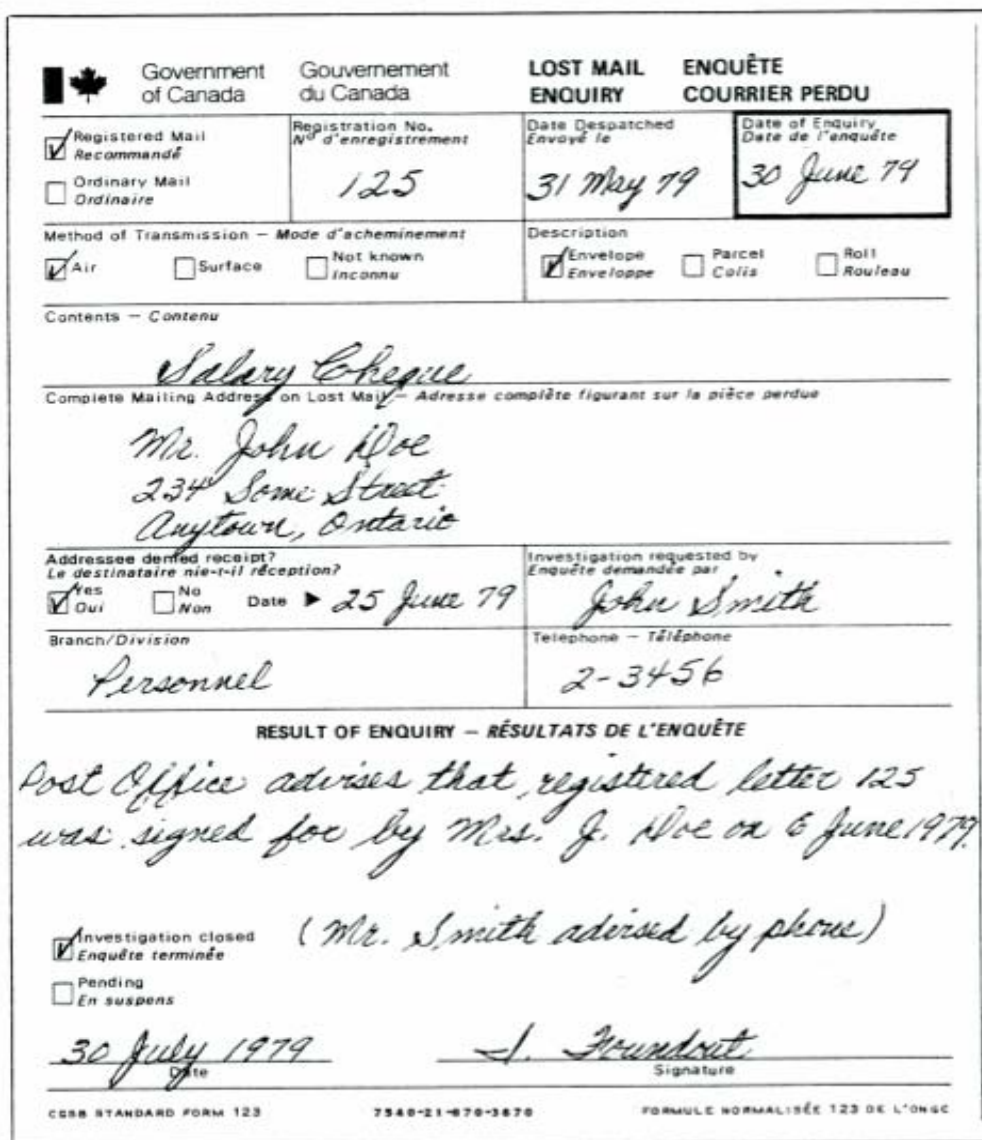 Government of Canada
Gouvernement du Canada
LOST MAIL ENQUIRY
ENQUÊTE COURRIER PERDU
Registered Mail
Recommandé
Ordinary Mail
Ordinaire
Registration No.
Nº d'enregistrement
125
Date Despatched
Envoyé le
31 May 79
Date of Enquiry
Date de l'enquête
30 June 79
Method of Transmission – Mode d'acheminement
Air
Surface
Not known
Inconnu
Description
Envelope
Enveloppe
Parcel
Colis
Roll
Rouleau
Contents – Contenu
Salary Cheque
Complete Mailing Address on Lost Mail – Adresse complète figurant sur la pièce perdue
Mr. John Doe
234 Some Street
Anytown, Ontario
Addressee denied receipt?
Le destinataire nie-t-il réception?
Yes
Oui
No
Non
Date ▶ 25 June 79
Investigation requested by
Enquête demandée par
John Smith
Branch/Division
Personnel
Telephone – Téléphone
2-3456
RESULT OF ENQUIRY – RÉSULTATS DE L'ENQUÊTE
Post Office advises that registered letter 125
was signed for by Mrs. J. Doe on 6 June 1979.
Investigation closed
Enquête terminée
(Mr. Smith advised by phone)
Pending
En suspens
30 July 1979
Date
I. Foundout
Signature
CGSB STANDARD FORM 123
7540-21-870-3870
FORMULE NORMALISÉE 123 DE L'ONGC